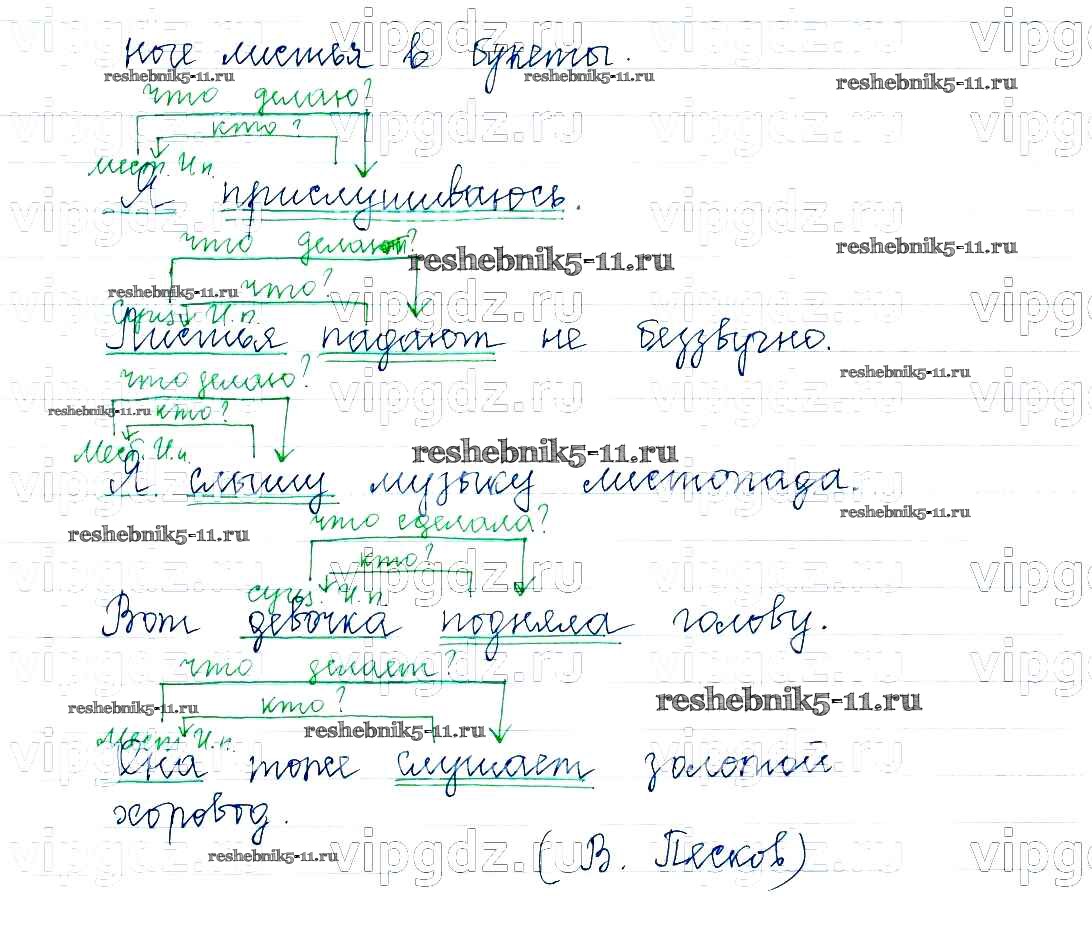 ные листья в букеты.
что делаю?
кто?
мест. И.п.
Я прислушиваюсь.
что делают?
что?
сущ. И.п.
Листья падают не беззвучно.
что делаю?
кто?
Мест. И.п.
Я слышу музыку листопада.
что сделала?
кто?
сущ. И.п.
Вот девочка подняла голову.
что делает?
кто?
Мест. И.п.
Она тоже слушает золотой
хоровод.
(В. Песков)
vipgdz.ru
reshebnik5-11.ru